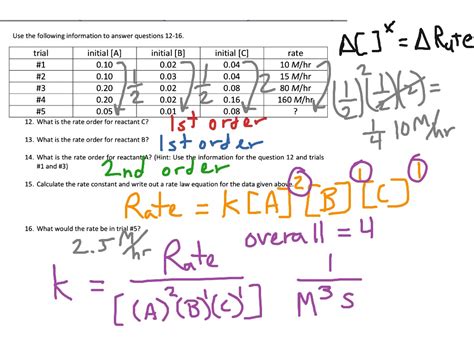 Use the following information to answer questions 12-16.
trial initial [A] initial [B] initial [C] rate
#1 0.10 0.02 0.04 10 M/hr
#2 0.10 0.03 0.04 15 M/hr
#3 0.20 0.02 0.08 80 M/hr
#4 0.20 0.02 0.16 160 M/hr
#5 0.05 0.01 0.08 ?
1/2
1/2
2
Δ[ ]ˣ = ΔRate
(1/2)²(1/2)(2) =
1/4 10 M/hr
12. What is the rate order for reactant C? 1st order
13. What is the rate order for reactant B? 1st order
14. What is the rate order for reactant A? (Hint: Use the information for the question 12 and trials
#1 and #3)
2nd order
15. Calculate the rate constant and write out a rate law equation for the data given above.
Rate = k[A]²[B]¹[C]¹
16. What would the rate be in trial #5?
2.5 M/hr
overall = 4
k = Rate / [(A)²(B)¹(C)¹] 1 / M³ s